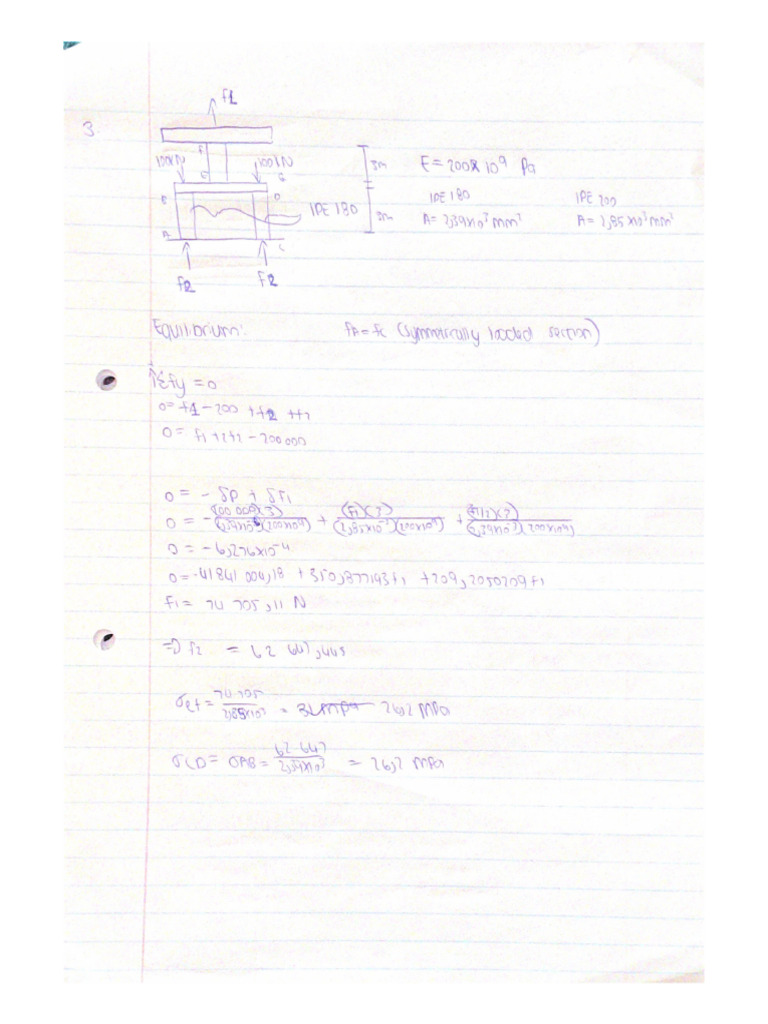 f1
3.
100kN 100kN
F
E
G
3m
E = 200 x 10⁹ Pa
B
D
IPE 180
3m
IPE 180 IPE 200
A = 2,39x10³ mm² A = 2,85 x10³ mm²
A
C
f2 f2
Equilibrium: fA = fc (symmetrically loaded section)
↑Σfy = 0
0 = f1 - 200 + f2 + f2
0 = f1 + 2f2 - 200 000
0 = - δp + δf1
0 = - (100 000)(3)/(2,39x10⁻³)(200x10⁹) + (f1)(3)/(2,85x10⁻³)(200x10⁹) + (f1/2)(3)/(2,39x10⁻³)(200x10⁹)
0 = -6,276x10⁻⁴
0 = -41841 004,18 + 350,877193f1 + 209,2050209f1
f1 = 74 705,11 N
⇒ f2 = 62 647,445
σef = 74 705/2,85x10³ = 26,2 MPa
σCD = σAB = 62 647/2,39x10³ = 26,2 MPa